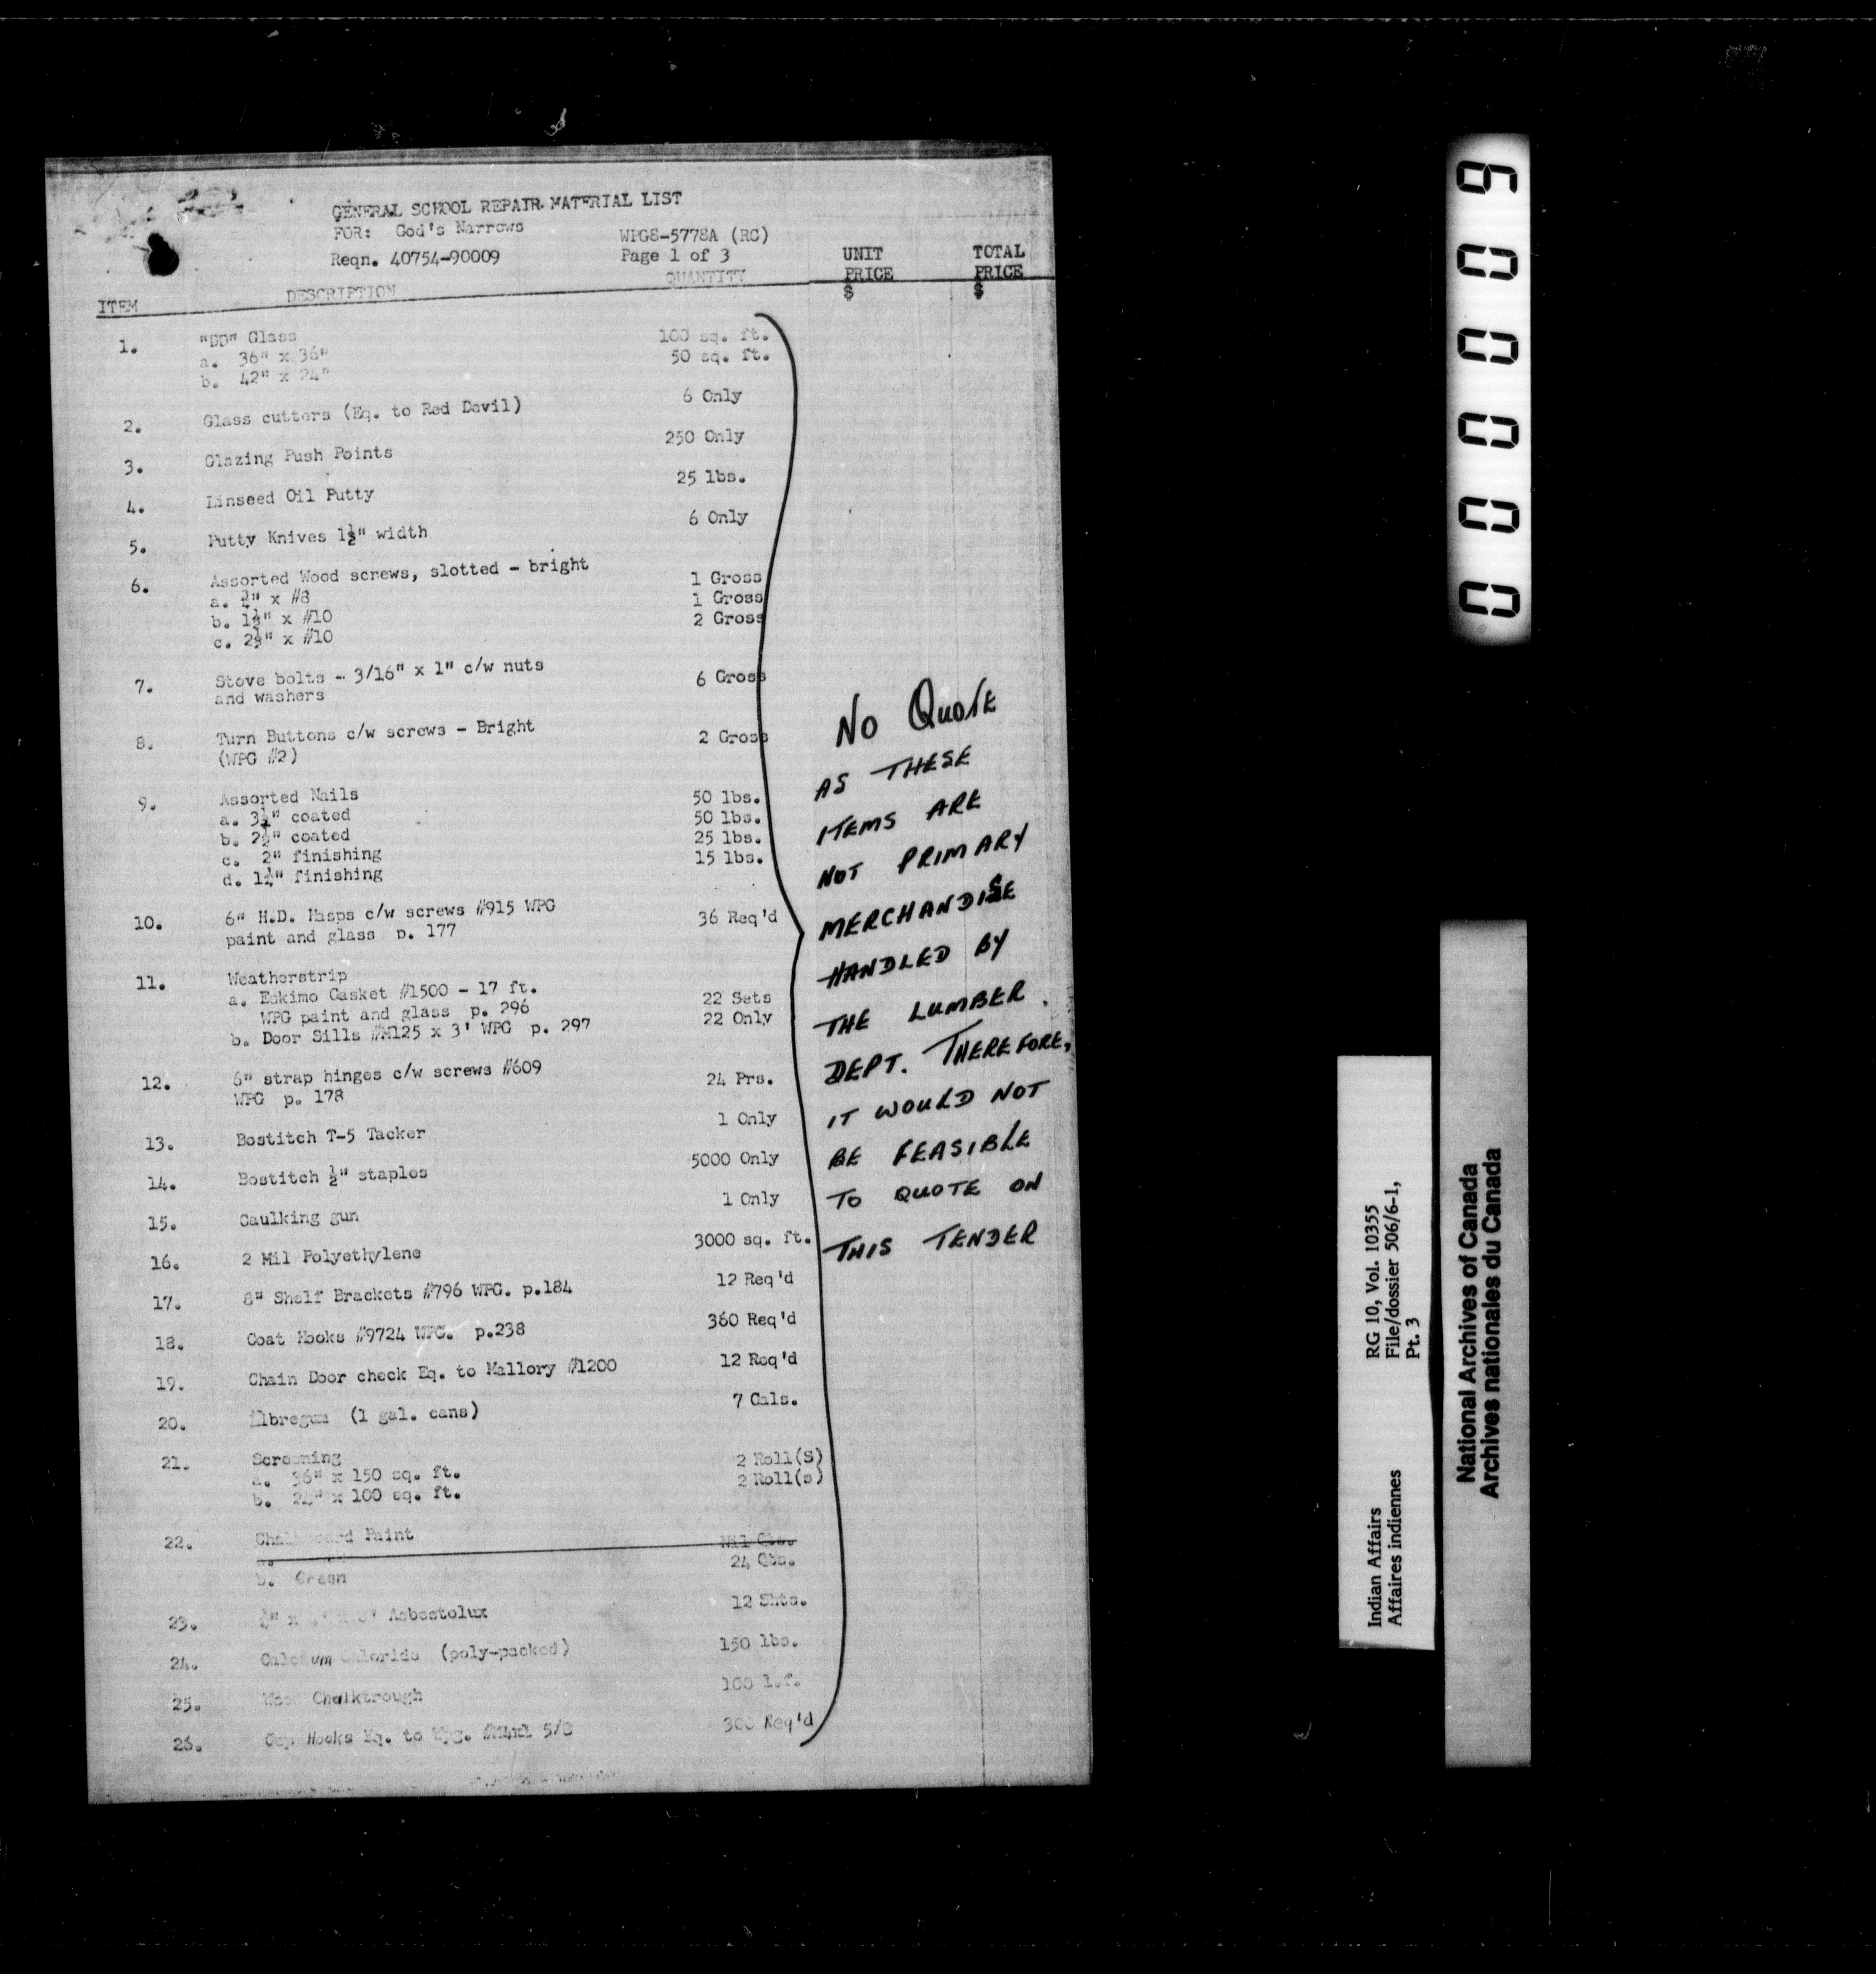 GENERAL SCHOOL REPAIR MATERIAL LIST
FOR: God's Narrows
WPG8-5778A (RC)
Reqn. 40754-90009
Page 1 of 3
UNIT PRICE $
TOTAL PRICE $
ITEM DESCRIPTION QUANTITY
1. "DD" Glass
a. 36" x 36" 100 sq. ft.
b. 42" x 24" 50 sq. ft.
2. Glass cutters (Eq. to Red Devil) 6 Only
3. Glazing Push Points 250 Only
4. Linseed Oil Putty 25 lbs.
5. Putty Knives 1½" width 6 Only
6. Assorted Wood screws, slotted - bright
a. ¾" x #8 1 Gross
b. 1½" x #10 1 Gross
c. 2½" x #10 2 Gross
7. Stove bolts - 3/16" x 1" c/w nuts 6 Gross
and washers
8. Turn Buttons c/w screws - Bright 2 Gross
(WPG #2)
9. Assorted Nails
a. 3¼" coated 50 lbs.
b. 2½" coated 50 lbs.
c. 2" finishing 25 lbs.
d. 1¼" finishing 15 lbs.
10. 6" H.D. Hasps c/w screws #915 WPG 36 Req'd
paint and glass p. 177
11. Weatherstrip
a. Eskimo Gasket #1500 - 17 ft. 22 Sets
WPG paint and glass p. 296
b. Door Sills #M125 x 3' WPG p. 297 22 Only
12. 6" strap hinges c/w screws #609 24 Prs.
WPG p. 178
13. Bostitch T-5 Tacker 1 Only
14. Bostitch ½" staples 5000 Only
15. Caulking gun 1 Only
16. 2 Mil Polyethylene 3000 sq. ft.
17. 8" Shelf Brackets #796 WPG. p.184 12 Req'd
18. Coat Hooks #9724 WPG. p.238 360 Req'd
19. Chain Door check Eq. to Mallory #1200 12 Req'd
20. (1 gal. cans) 7 Gals.
21. Screening
a. 36" x 150 sq. ft. 2 Roll(S)
b. 24" x 100 sq. ft. 2 Roll(s)
22. Chalkboard Paint
a. Nil Qts.
b. Green 24 Qts.
23. Asbestolux 12 Shts.
24. Calcium Chloride (poly-packed) 150 lbs.
25. Wood Chalktrough 100 l.f.
26. Cup Hooks Eq. to Wpg. 5/8 300 Req'd
NO QUOTE
AS THESE
ITEMS ARE
NOT PRIMARY
MERCHANDISE
HANDLED BY
THE LUMBER
DEPT. THEREFORE,
IT WOULD NOT
BE FEASIBLE
TO QUOTE ON
THIS TENDER
000009
Indian Affairs RG 10, Vol. 10355
Affaires indiennes File/dossier 506/6-1,
Pt. 3
National Archives of Canada
Archives nationales du Canada